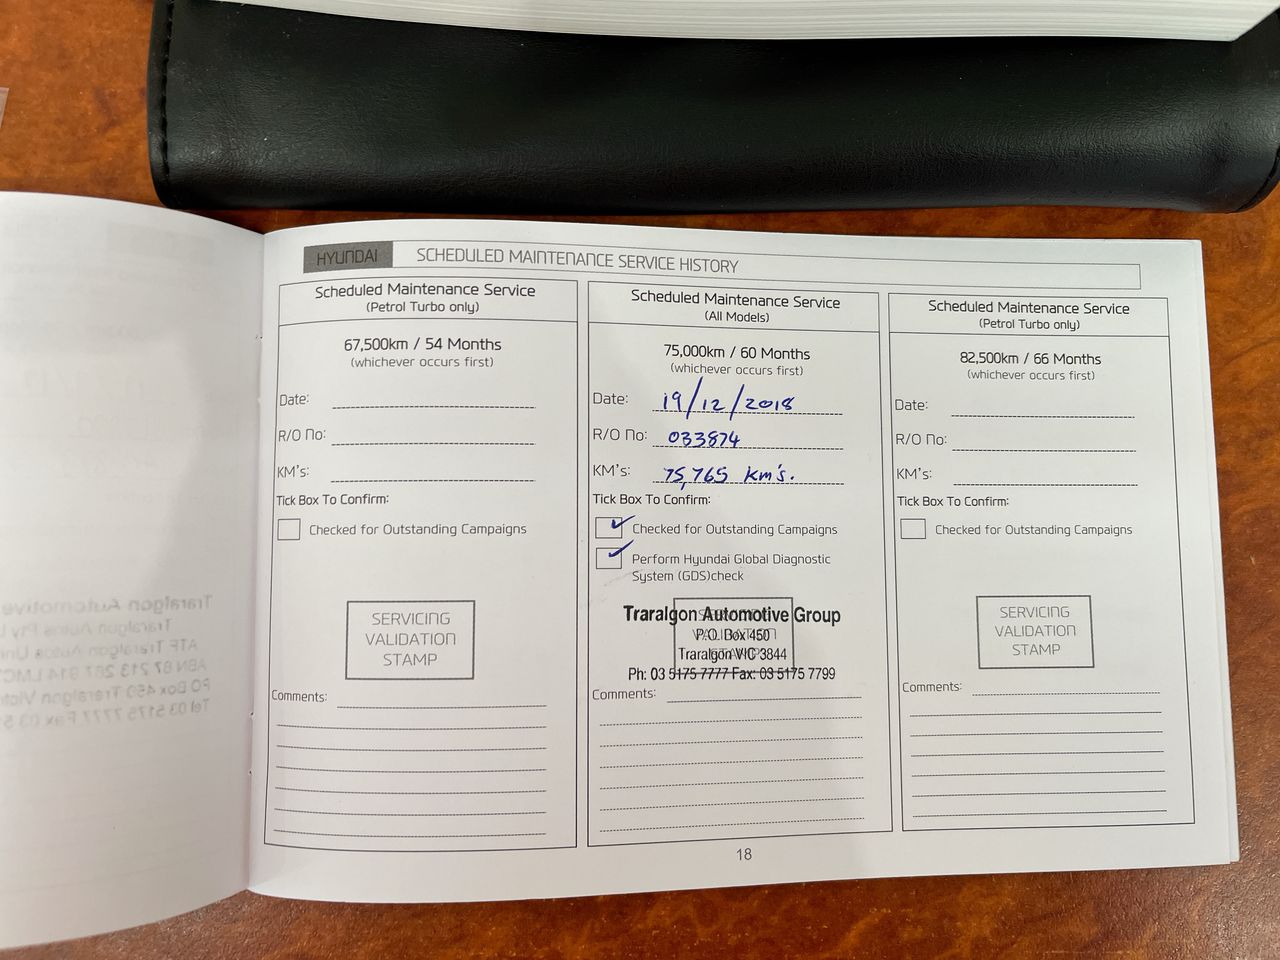 HYUNDAI SCHEDULED MAINTENANCE SERVICE HISTORY
Scheduled Maintenance Service
(Petrol Turbo only)
67,500km / 54 Months
(whichever occurs first)
Date:
R/O No:
KM's:
Tick Box To Confirm:
Checked for Outstanding Campaigns
SERVICING
VALIDATION
STAMP
Comments:
Scheduled Maintenance Service
(All Models)
75,000km / 60 Months
(whichever occurs first)
Date: 19/12/2018
R/O No: 033874
KM's: 75,765 Km's.
Tick Box To Confirm:
Checked for Outstanding Campaigns
Perform Hyundai Global Diagnostic
System (GDS)check
SERVICING
VALIDATION
STAMP
Traralgon Automotive Group
P.O. Box 450
Traralgon VIC 3844
Ph: 03 5175 7777 Fax: 03 5175 7799
Comments:
Scheduled Maintenance Service
(Petrol Turbo only)
82,500km / 66 Months
(whichever occurs first)
Date:
R/O No:
KM's:
Tick Box To Confirm:
Checked for Outstanding Campaigns
SERVICING
VALIDATION
STAMP
Comments:
18